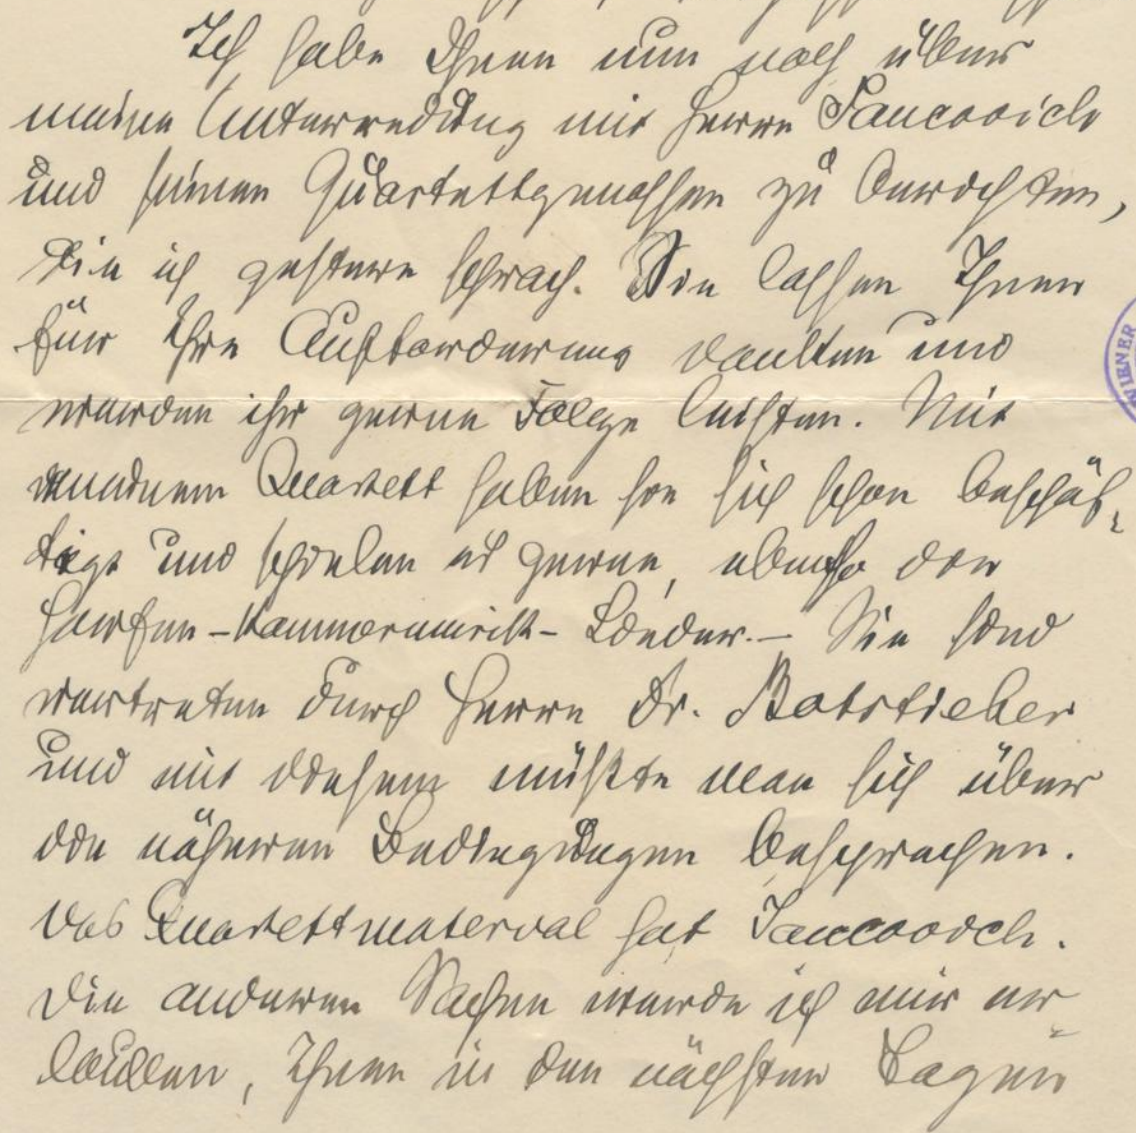 Ich habe Ihnen nun noch über
meine Unterredung mit Herrn Jancovich
und seinen Quartettgenossen zu berichten,
die ich gestern sprach. Sie lassen Ihnen
für Ihre Aufforderung danken und
werden ihr gerne Folge leisten. Mit
meinem Quartett haben sie sich schon beschäf-
tigt und spielen es gerne, ebenso die
Harfen-Kammermusik-Lieder.- Sie sind
vertreten durch Herrn Dr. Botstieber
und mit diesem müßte man sich über
die näheren Bedingungen besprechen.
Das Quartettmaterial hat Jancovich.
Die anderen Sachen werde ich mir er-
lauben, Ihnen in den nächsten Tagen
WIENER